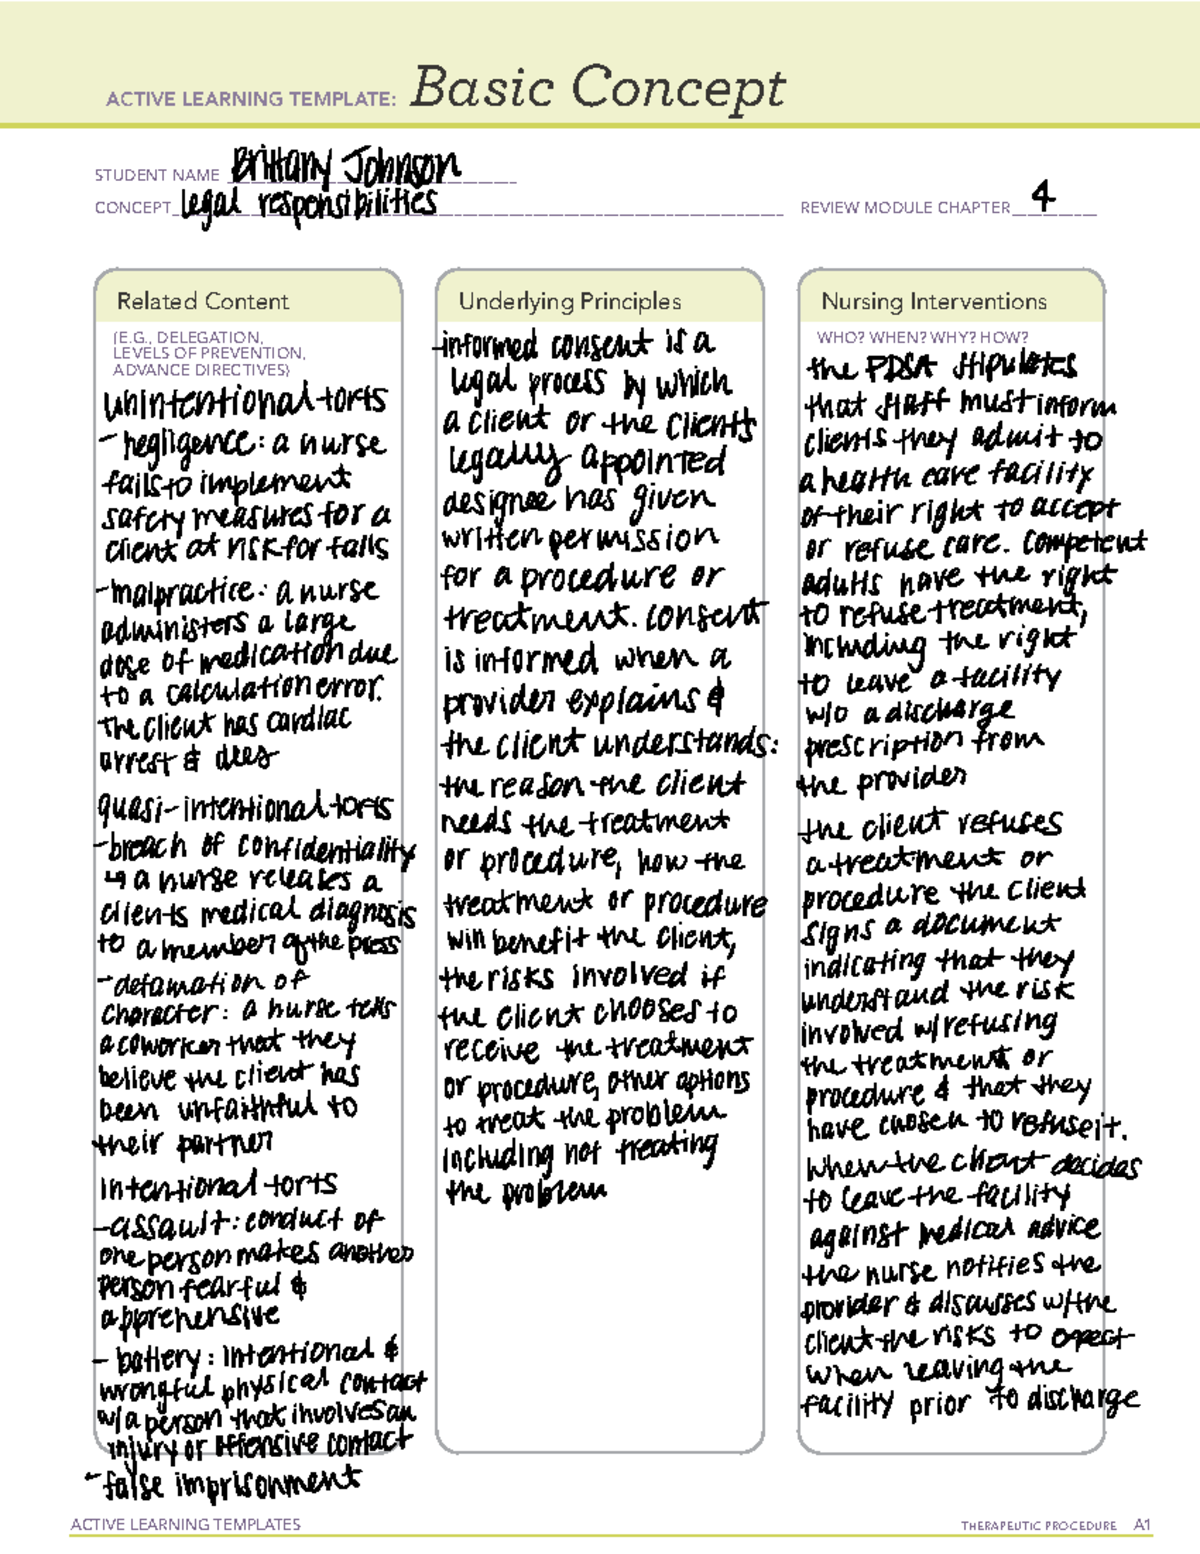 ACTIVE LEARNING TEMPLATE: Basic Concept
STUDENT NAME Brittany Johnson
CONCEPT legal responsibilities REVIEW MODULE CHAPTER 4
Related Content
(E.G., DELEGATION,
LEVELS OF PREVENTION,
ADVANCE DIRECTIVES)
unintentional torts
- negligence: a nurse
fails to implement
safety measures for a
client at risk for falls
- malpractice: a nurse
administers a large
dose of medication due
to a calculation error.
the client has cardiac
arrest & dies
quasi-intentional torts
- breach of confidentiality
↳ a nurse releases a
clients medical diagnosis
to a member of the press
- defamation of
character: a nurse tells
a coworker that they
believe the client has
been unfaithful to
their partner
intentional torts
- assault: conduct of
one person makes another
person fearful &
apprehensive
- battery: intentional &
wrongful physical contact
w/ a person that involves an
injury or offensive contact
- false imprisonment
Underlying Principles
- informed consent is a
legal process by which
a client or the clients
legally appointed
designee has given
written permission
for a procedure or
treatment. consent
is informed when a
provider explains &
the client understands:
the reason the client
needs the treatment
or procedure, how the
treatment or procedure
will benefit the client,
the risks involved if
the client chooses to
receive the treatment
or procedure, other options
to treat the problem
including not treating
the problem
Nursing Interventions
WHO? WHEN? WHY? HOW?
the PDSA stipulates
that staff must inform
clients they admit to
a health care facility
of their right to accept
or refuse care. competent
adults have the right
to refuse treatment,
including the right
to leave a facility
w/o a discharge
prescription from
the provider
the client refuses
a treatment or
procedure the client
signs a document
indicating that they
understand the risk
involved w/ refusing
the treatment or
procedure & that they
have chosen to refuse it.
when the client decides
to leave the facility
against medical advice
the nurse notifies the
provider & discusses w/ the
client the risks to expect
when leaving the
facility prior to discharge
ACTIVE LEARNING TEMPLATES
THERAPEUTIC PROCEDURE A1